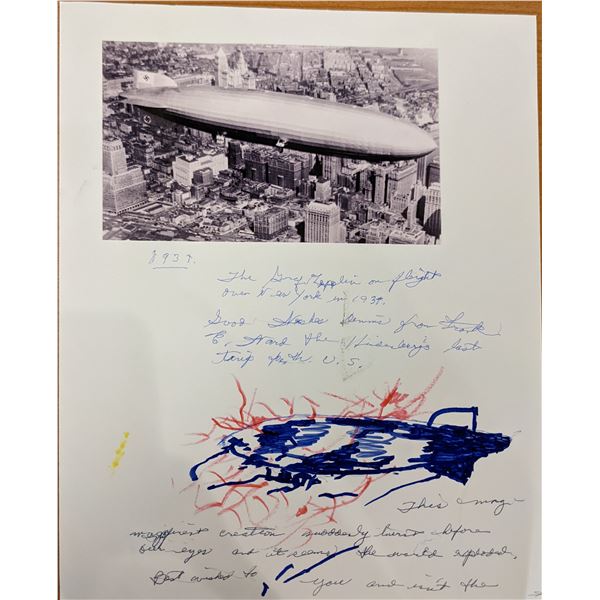 1937.
The Graf Zeppelin on flight
over New York in 1937.
Good Dennis from Frank
E. Ward the Hindenberg's last
trip to the U. S.
This
creation suddenly burst before
our eyes as it seemed the world exploded.
Best wishes to you and isn't the